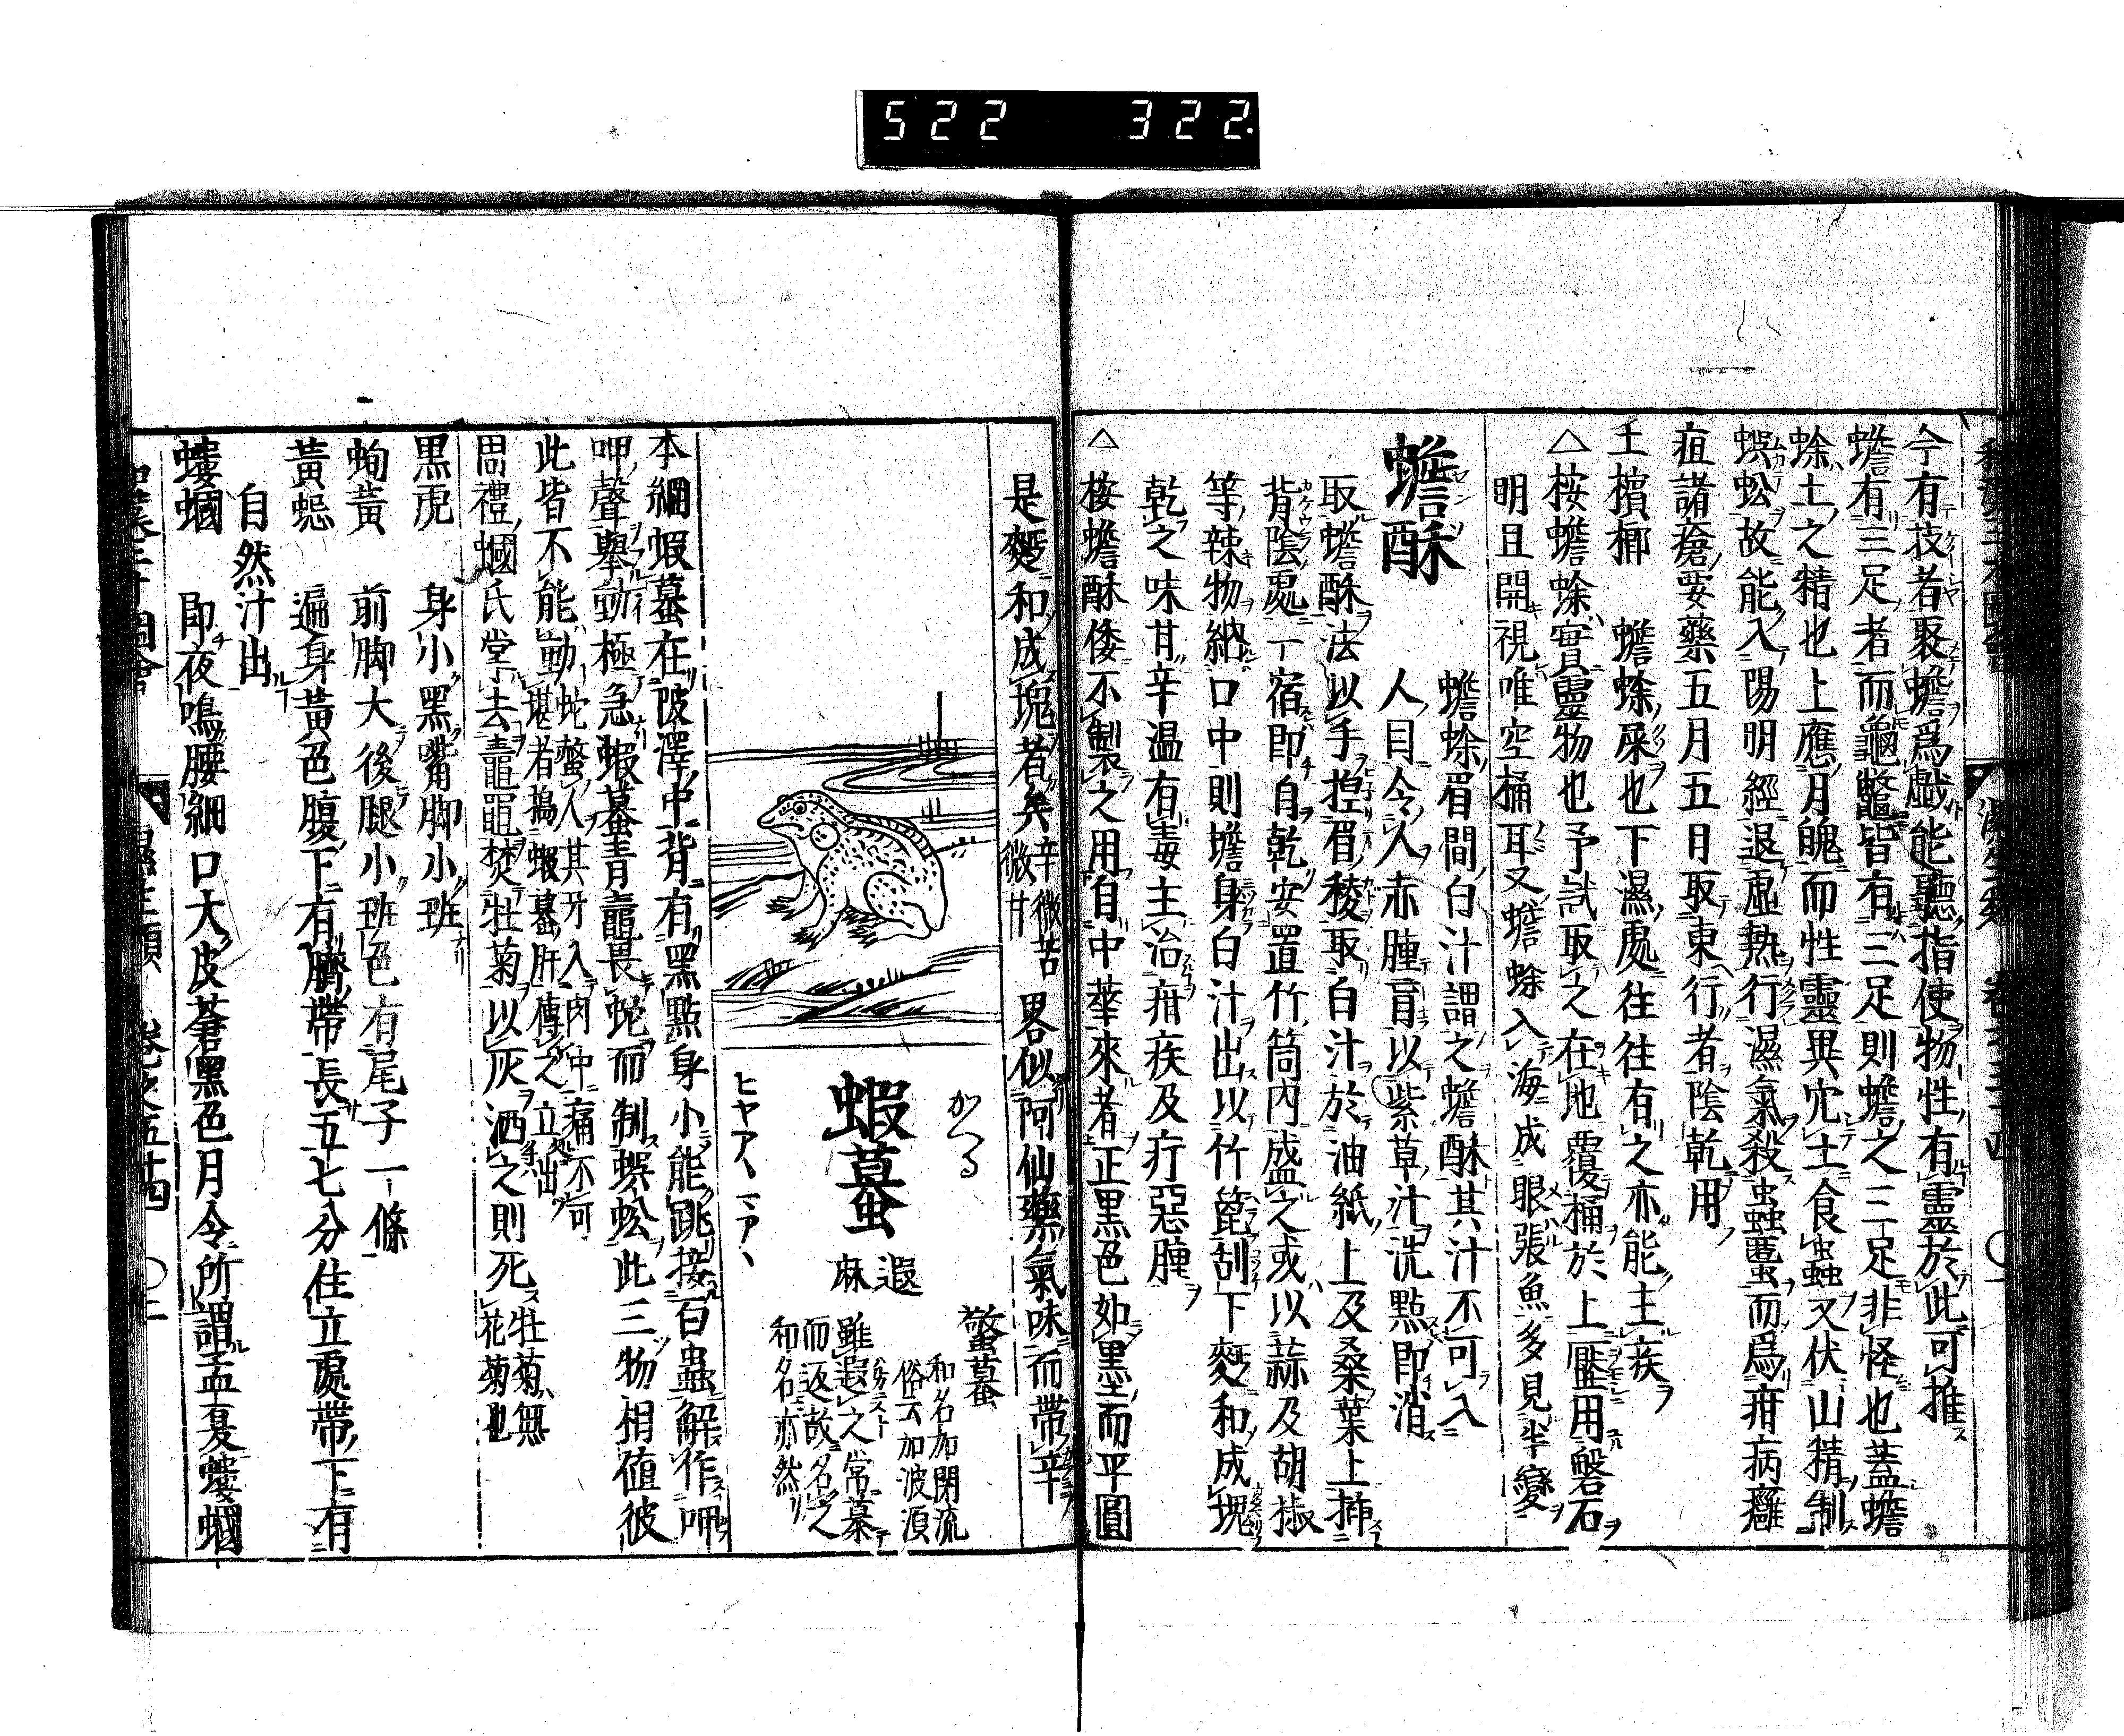 522 322.
今有技者聚蟾爲戲能聽指使物性有靈於此可推
蟾有三足者而龜鼈皆有三足則蟾之三足非怪也蓋蟾
蜍土之精也上應月魄而性靈異穴土食虫又伏山精制
蜈蚣故能入陽明經退虛熱行濕氣殺虫䘌而爲疳病癰
疽諸瘡要藥五月五日取東行者陰乾用
土檳榔 蟾蜍屎也下濕處往往有之亦能主疾
△桉蟾蜍實靈物也予試取之在地覆桶於上壓用磐石
明且開視唯空桶耳又蟾蜍入海成眼張魚多見半變
蟾酥 蟾蜍眉間白汁謂之蟾酥其汁不可入
人目令人赤腫盲以紫草汁洗點即消
取蟾酥法以手揑眉稜取白汁於油紙上及桑葉上揷
背陰處一宿即自乾安置竹筒内盛之或以蒜及胡椒
等辣物納口中則蟾身白汁出以竹篦刮下麪和成塊
乾之味甘辛温有毒主治疳疾及疔惡腫
△桉蟾酥倭不製之用自中華來者正黒色如墨而平圓
是麪和成塊者矣辛微苦微甘畧似阿仙藥氣味而帶辛
かへる
蝦蟇
ヒヤアヽマアヽ
遐麻
螫蟇
和名加閉流
俗云加波須
雖遐之常慕
而返故名之
和名亦然
本綱蝦蟇在陂澤中背有黑點身小能跳接百蟲解作呷
呷聲舉動極急蝦蟇青鼃畏蛇而制蜈蚣此三物相値彼
此皆不能動蛇螫人其牙入肉中痛不可堪者搗蝦蟇肝傅之立出
周禮蟈氏掌去鼃黽焚牡菊以灰洒之則死牡菊無花菊也
黒虎 身小黑嘴脚小班
蚼黃 前脚大後腿小班色有尾子一條
黃䖤 遍身黃色腹下有臍帶長五七分住立處帶下有
自然汁出
螻蟈 即夜鳴腰細口大皮蒼黑色月令所謂孟夏螻蟈